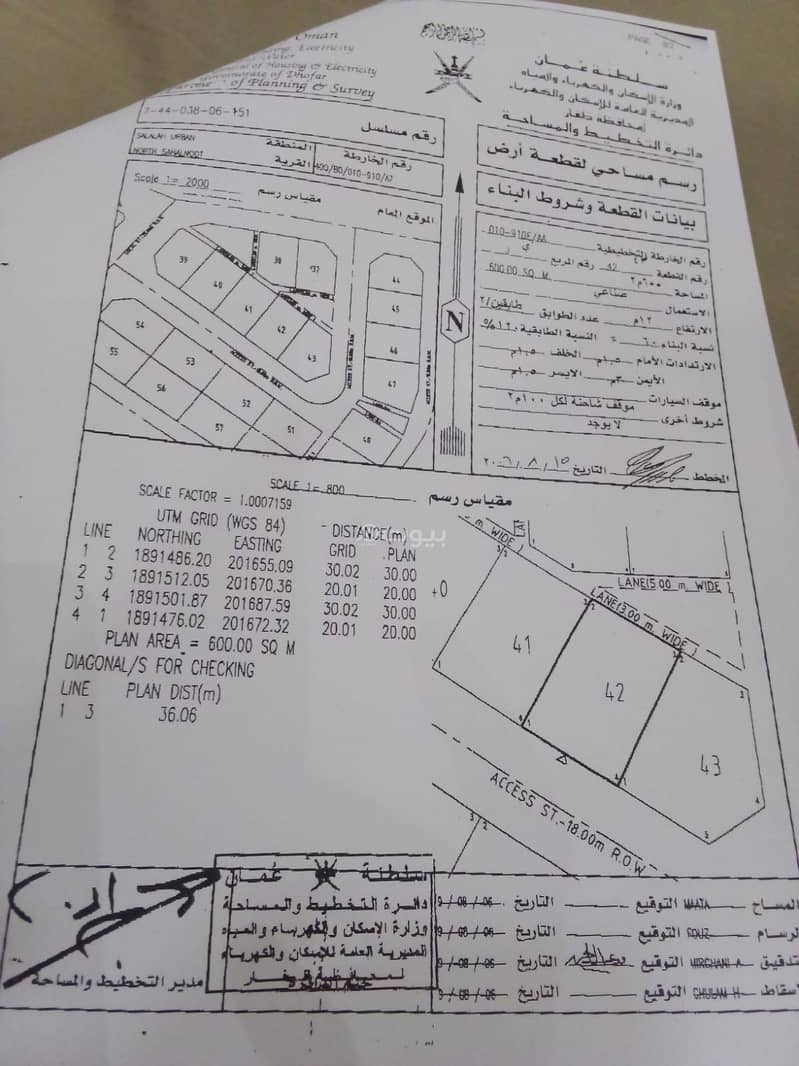 PAGE 02
Oman
Electricity
Water
of Housing & Electricity
Governorate of Dhofar
of Planning & Survey
سلطنة عمان
وزارة الإسكان والكهرباء والمياه
المديرية العامة للإسكان والكهرباء
بمحافظة ظفار
دائرة التخطيط والمساحة
رقم مسلسل
-44-038-06-151
SALALAH URBAN المنطقة
NORTH SAHALNOOT القرية
رقم الخارطة
400/BD/010-910/A7
Scale 1= 2000 مقياس رسم
الموقع العام
رسم مساحي لقطعة أرض
بيانات القطعة وشروط البناء
رقم الخارطة التخطيطية
رقم القطعة 42 رقم المربع
المساحة ٦٠٠م٢ 600.00 SQ M
الاستعمال صناعي
الارتفاع ١٢م عدد الطوابق طابقين/٢
نسبة البناء ٦٠% النسبة الطابقية ١٢٠%
الارتدادات الأمام ١,٥م الخلف ١,٥م
الأيمن ٣م الايسر ١,٥م
موقف السيارات موقف شاحنة لكل ١٠٠م٢
شروط أخرى لا يوجد
المخطط التاريخ ١٥/٨/٢٠٠٦
N
39
40
41
42
43
38
37
44
45
46
47
48
54
55
53
56
52
57
51
SCALE 1= 800 مقياس رسم
SCALE FACTOR = 1.0007159
UTM GRID (WGS 84) DISTANCE(m)
LINE NORTHING EASTING GRID PLAN
1 2 1891486.20 201655.09 30.02 30.00
2 3 1891512.05 201670.36 20.01 20.00
3 4 1891501.87 201687.59 30.02 30.00
4 1 1891476.02 201672.32 20.01 20.00
PLAN AREA = 600.00 SQ M
DIAGONAL/S FOR CHECKING
LINE PLAN DIST(m)
1 3 36.06
+0
بيوت
m. WIDE
LANE(5.00 m. WIDE)
LANE(3.00 m. WIDE)
41
42
43
ACCESS ST.-18.00m R.O.W
سلطنة عمان
دائرة التخطيط والمساحة
وزارة الإسكان والكهرباء والمياه
المديرية العامة للإسكان والكهرباء
لمحافظة ظفار
مدير التخطيط والمساحة
المساح MAATA التوقيع التاريخ 9/08/06
الرسام التوقيع التاريخ 9/08/06
تدقيق MIRGHANI A التوقيع التاريخ 9/08/06
اسقاط GHULAM H التوقيع التاريخ 9/08/06